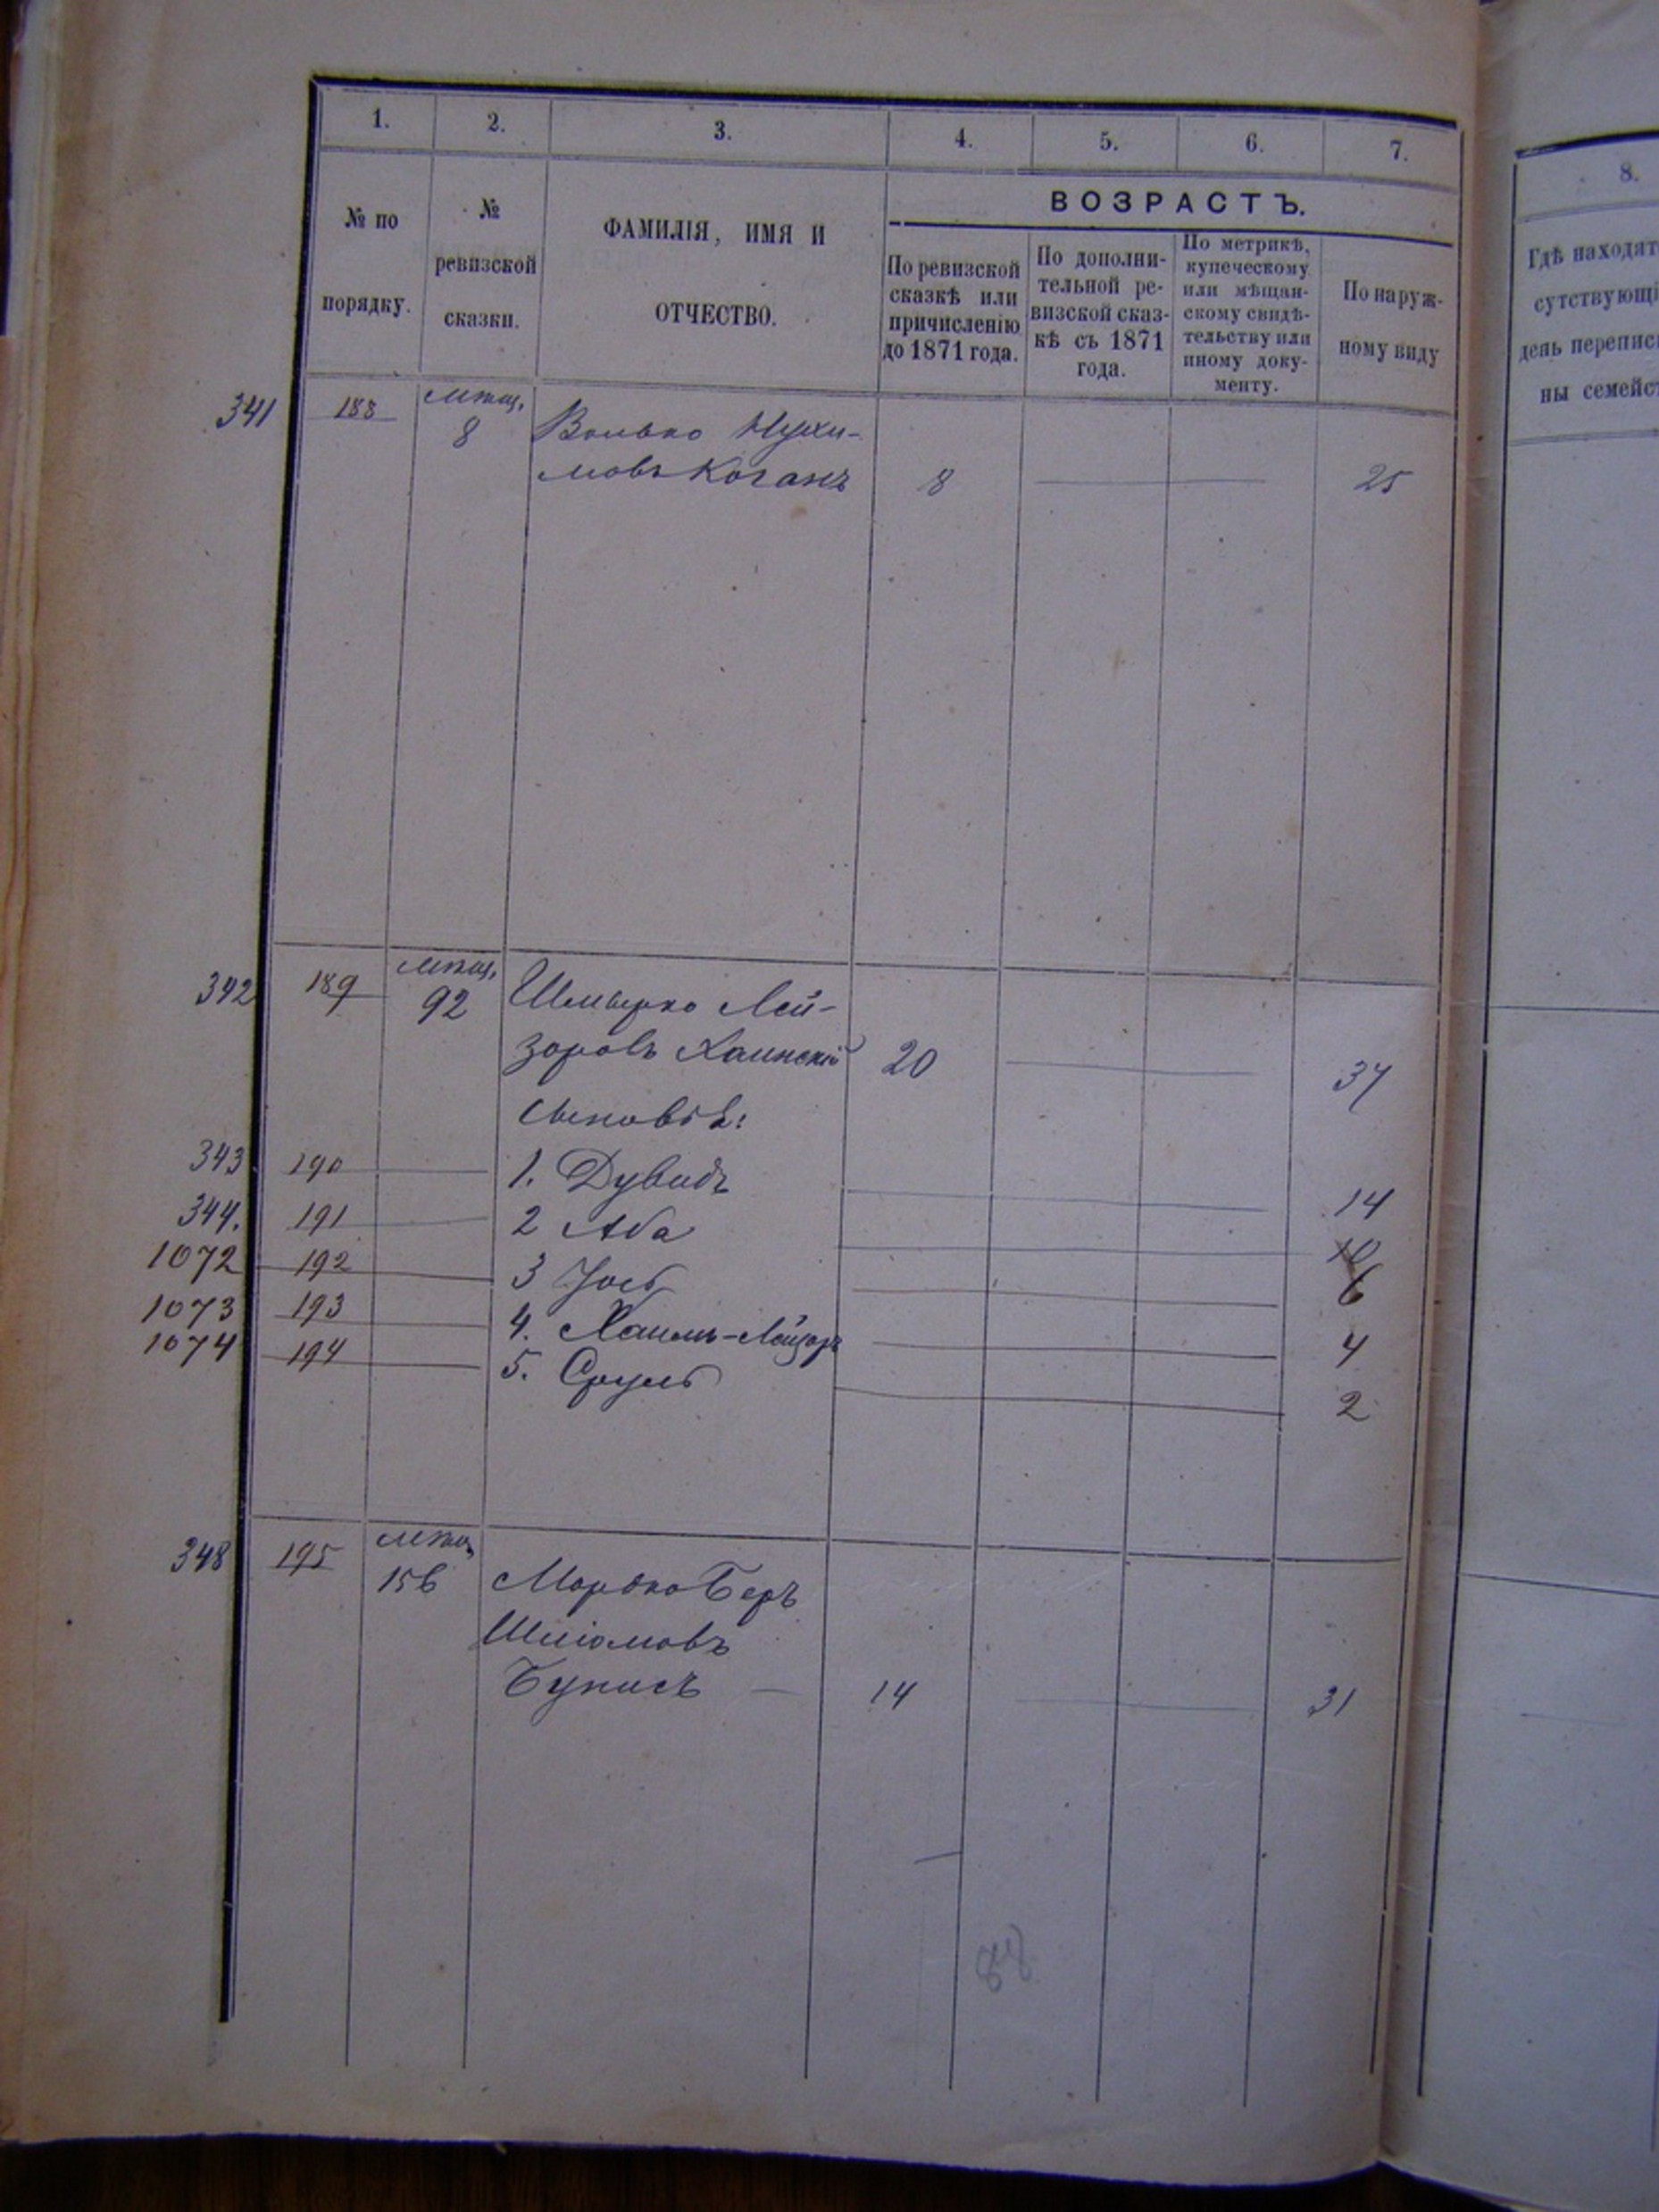 1. 2. 3. 4. 5. 6. 7.
№ по порядку.
№ ревизской сказки.
ФАМИЛІЯ, ИМЯ И
ОТЧЕСТВО.
ВОЗРАСТЪ.
По ревизской
сказкѣ или
причисленію
до 1871 года.
По дополни-
тельной ре-
визской сказ-
кѣ съ 1871
года.
По метрикѣ,
купеческому
или мѣщан-
скому свидѣ-
тельству или
иному доку-
менту.
По наруж-
ному виду
341 188 мѣщ.
8 Волько Нухи-
мовъ Коганъ 8 25
342 189 мѣщ.
92 Шмырко Лей-
зоровъ Хаинскій 20 37
Сыновья:
343 190 1. Дувидъ 14
344. 191 2 Аба 10
1072 192 3 Іось 6
1073 193 4. Хаимъ-Лейзоръ 4
1074 194 5. Сруль 2
348 195 мѣщ
156 Мордко Беръ
Шліомовъ
Букисъ — 14 31
8.
Гдѣ находят
сутствующі
день перепис
ны семейст